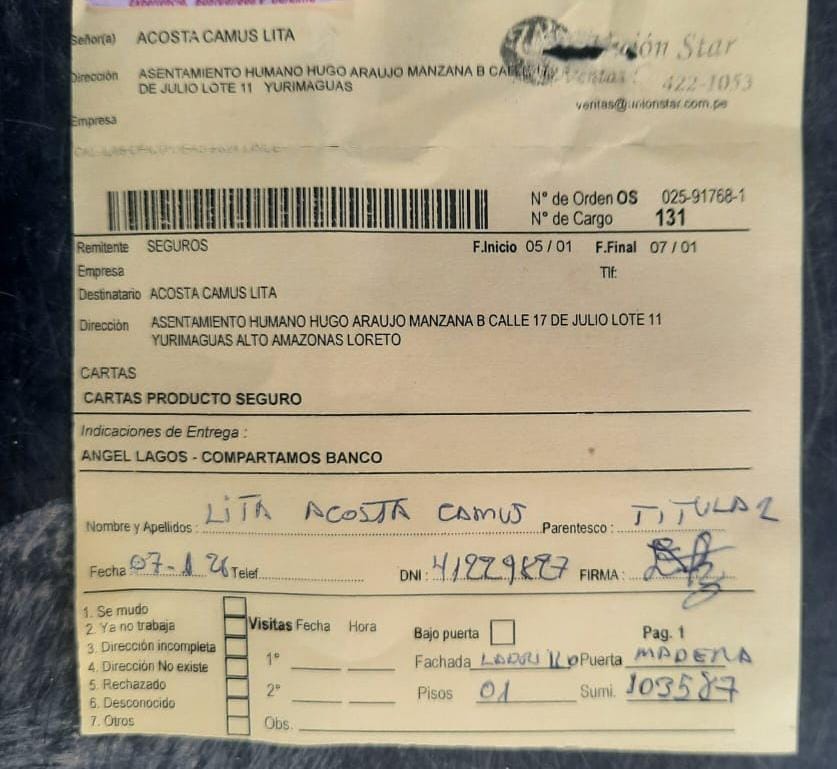 Señor(a) ACOSTA CAMUS LITA
Dirección ASENTAMIENTO HUMANO HUGO ARAUJO MANZANA B CALLE 17
DE JULIO LOTE 11 YURIMAGUAS
Star
Ventas: 422-1053
ventas@unionstar.com.pe
Empresa
N° de Orden OS 025-91768-1
N° de Cargo 131
Remitente SEGUROS F.Inicio 05 / 01 F.Final 07 / 01
Empresa Tlf:
Destinatario ACOSTA CAMUS LITA
Dirección ASENTAMIENTO HUMANO HUGO ARAUJO MANZANA B CALLE 17 DE JULIO LOTE 11
YURIMAGUAS ALTO AMAZONAS LORETO
CARTAS
CARTAS PRODUCTO SEGURO
Indicaciones de Entrega :
ANGEL LAGOS - COMPARTAMOS BANCO
Nombre y Apellidos : LITA ACOSTA CAMUS Parentesco : TITULAR
Fecha 07-1 26 Telef. DNI : 41229827 FIRMA :
1. Se mudo
2. Ya no trabaja
3. Dirección incompleta
4. Dirección No existe
5. Rechazado
6. Desconocido
7. Otros
Visitas Fecha Hora
1°
2°
Obs.
Bajo puerta Pag. 1
Fachada LADRILLO Puerta MADERA
Pisos 01 Sumi. 103587